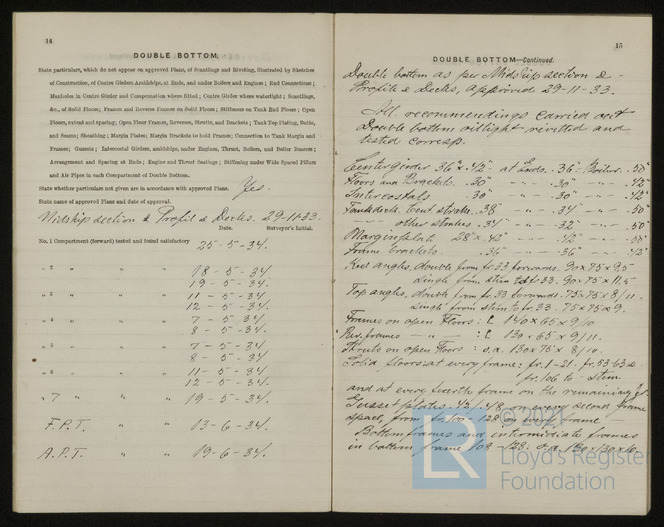 14
DOUBLE BOTTOM.
State particulars, which do not appear on approved Plans, of Scantlings and Riveting, illustrated by Sketches
of Construction, of Centre Girders Amidships, at Ends, and under Boilers and Engines; End Connections;
Manholes in Centre Girders and Compensation where fitted; Centre Girders where watertight; Scantlings,
&c., of Solid Floors; Frames and Reverse Frames on Solid Floors; Stiffeners on Tank End Floors; Open
Floors, extent and spacing; Open Floor Frames, Reverses, Struts, and Brackets; Tank Top Plating, Butts,
and Seams; Sheathing; Margin Plates; Margin Brackets to hold Frames; Connection to Tank Margin and
Frames; Gussets; Intercostal Girders, amidships, under Engines, Thrust, Boilers, and Boiler Bearers;
Arrangement and Spacing at Ends; Engine and Thrust Seatings; Stiffening under Wide Spaced Pillars
and Air Pipes in each Compartment of Double Bottom.
State whether particulars not given are in accordance with approved Plans. Yes.
State name of approved Plans and date of approval.
Midship section & Profil & Decks. 29-11-33.
Date. Surveyor's Initial.
No. 1 Compartment (forward) tested and found satisfactory 25-5-34.
" 2 " " " 18-5-34
19-5-34.
" 3 " " " 11-5-34
12-5-34.
" 4 " " " 7-5-34
8-5-34.
" 5 " " " 7-5-34
8-5-34.
" 6 " " " 11-5-34
12-5-34.
" 7 " " " 19-5-34.
F.P.T. " " 13-6-34.
A.P.T. " " 19-6-34.
15
DOUBLE BOTTOM—Continued.
Double bottom as per Midship section &
Profil & Decks, approved 29-11-33.
All recommendings carried out
Double bottom oiltight rivetted and
tested corresp.
Centergirder 36"x.42" at Ends. .36" Boiler. .50"
Floors and Brackets. .30" - - .30" - - .42"
Intercostals .30" - - .30" - - .42"
Tankdeck. Cent. strake. .38 - .34 - - .50"
- other strakes. .34 - - .32 - - .50"
Marginplate 28"x.42" - - .42" - - .50"
Frame brackets. .36" - - .36" - - .42"
Keel angles, double from fr. 33 forwards. 90x75x9,5
Single from stem to fr 33. 90x75x11,5
Top angles, double from fr. 33 forwards. 75x75x8/11.
Single from stem to fr. 33. 75x75x9.
Frames on open Floors: [ 140x65x9/10.
Rev. frames - - - : [ 130x65x9/11.
Struts on open Floors: o.a. 130x75x8/10.
Solid floors at every frame: fr. 1-21. fr. 53-63 &
fr. 106 to stem
and at every fourth frame on the remaining
Gusset plates on every second frame
space, from fr. 128 on every frame
Bottom frames and intermediate frames
in bottom frame 103-128. o.a.
© 2021
LR
Lloyd's Register
Foundation